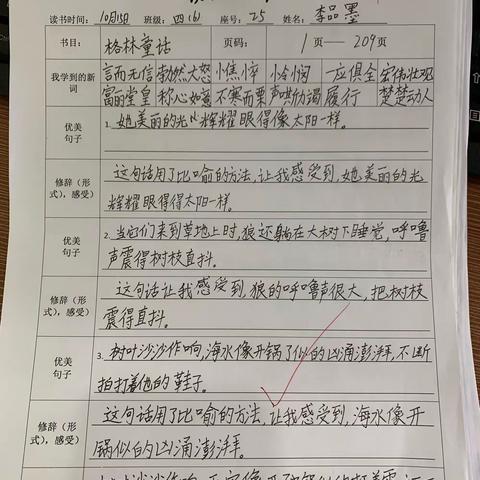 读书时间：10月15日 班级：四(6) 座号：25 姓名：李品墨
书目： 格林童话 页码： 1页——209页
我学到的新词 言而无信 勃然大怒 憔悴 恰悯 一应俱全 宏伟壮观
富丽堂皇 称心如意 不寒而栗 声哄劝谒 履行 楚楚动人
优美句子 1. 她美丽的光辉耀眼得像太阳一样。
修辞（形式），感受） 这句话用了比喻的方法，让我感受到，她美丽的光
辉耀眼得得太阳一样。
优美句子 2. 当它们来到草地上时，狼还躺在大树下睡觉，呼噜
声震得树枝直抖。
修辞（形式），感受） 这句话让我感受到，狼的呼噜声很大，把树枝
震得直抖。
优美句子 3. 树叶沙沙作响，海水像开锅了似的凶涌澎湃，不断
拍打着他的鞋子。
修辞（形式），感受） 这句话用了比喻的方法，让我感受到，海水像开
锅似的凶涌澎湃。